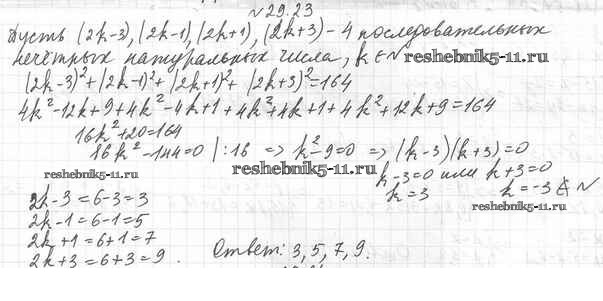 №29.23
Пусть (2k-3), (2k-1), (2k+1), (2k+3) - 4 последовательных
нечётных натуральных числа, k∈N
reshebnik5-11.ru
(2k-3)²+(2k-1)²+(2k+1)²+(2k+3)²=164
4k²-12k+9+4k²-4k+1+4k²+4k+1+4k²+12k+9=164
16k²+20=164
16k²-144=0 |:16 => k²-9=0 => (k-3)(k+3)=0
reshebnik5-11.ru
reshebnik5-11.ru
k-3=0 или k+3=0
k=3 k=-3 ∉ N
reshebnik5-11.ru
2k-3=6-3=3
2k-1=6-1=5
2k+1=6+1=7
2k+3=6+3=9.
Ответ: 3, 5, 7, 9.